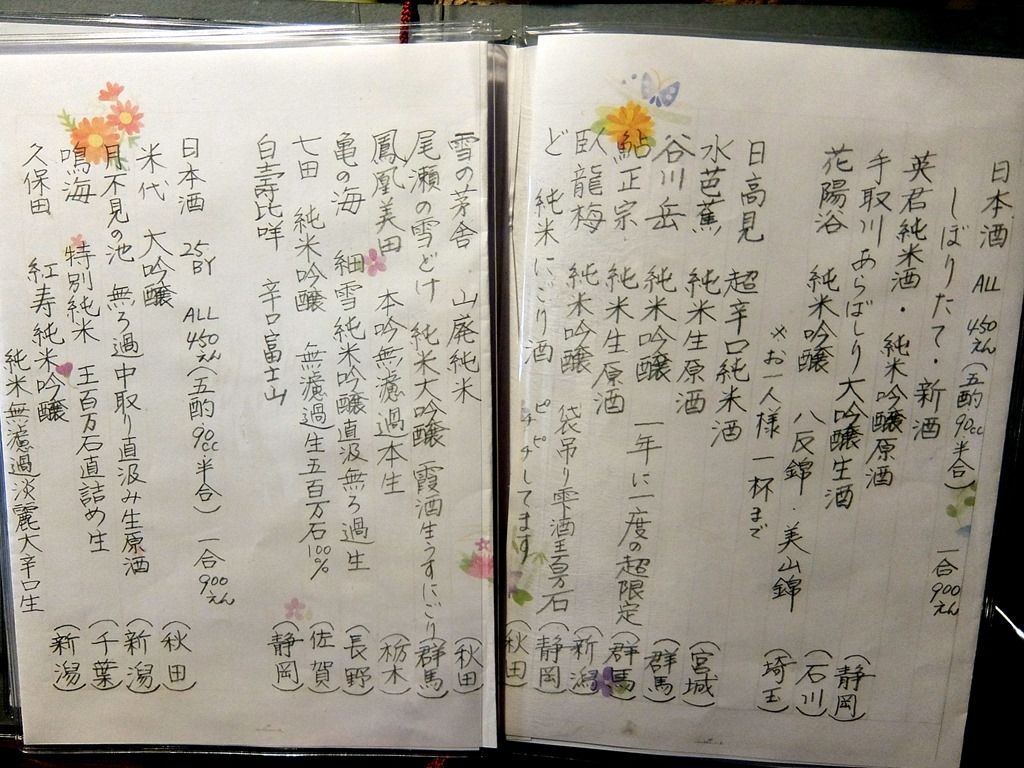 日本酒 ALL 450えん(五酌90cc半合) 一合900えん
しぼりたて・新酒
英君 純米酒・純米吟醸原酒 (静岡)
手取川 あらばしり大吟醸生酒 (石川)
花陽谷 純米吟醸 八反錦・美山錦 (埼玉)
※お一人様一杯まで
日高見 超辛口純米酒 (宮城)
水芭蕉 純米生原酒 (群馬)
谷川岳 純米吟醸 一年に一度の超限定 (群馬)
鮎正宗 純米生原酒 (新潟)
臥龍梅 純米吟醸 袋吊り雫酒五百万石 (静岡)
ど 純米にごり酒 ピチピチしてます (秋田)
雪の茅舎 山廃純米 (秋田)
尾瀬の雪どけ 純米大吟醸 霞酒生うすにごり (群馬)
鳳凰美田 本吟無濾過本生 (栃木)
亀の海 細雪純米吟醸直汲無ろ過生 (長野)
七田 純米吟醸 無濾過生五百万石100% (佐賀)
白壽比咩 辛口富士山 (静岡)
日本酒 25BY ALL 450えん(五酌90cc半合) 一合900えん
米代 大吟醸 (秋田)
月不見の池 無ろ過中取り直汲み生原酒 (新潟)
鳴海 特別純米 五百万石直詰め生 (千葉)
久保田 紅寿純米吟醸 (新潟)
純米無濾過淡麗大辛口生